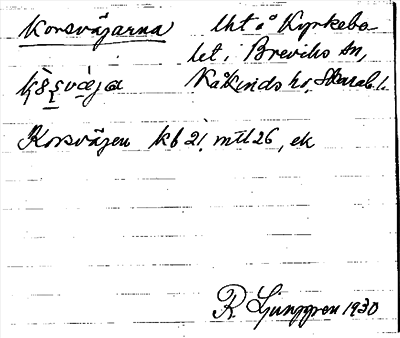 Korsväjarna lht å Kyrkebo-
let, Breviks sn,
Kåkinds hd, Skarab. l.
Korsvägen kb 21, mtl 26, ek
R Ljunggren 1930